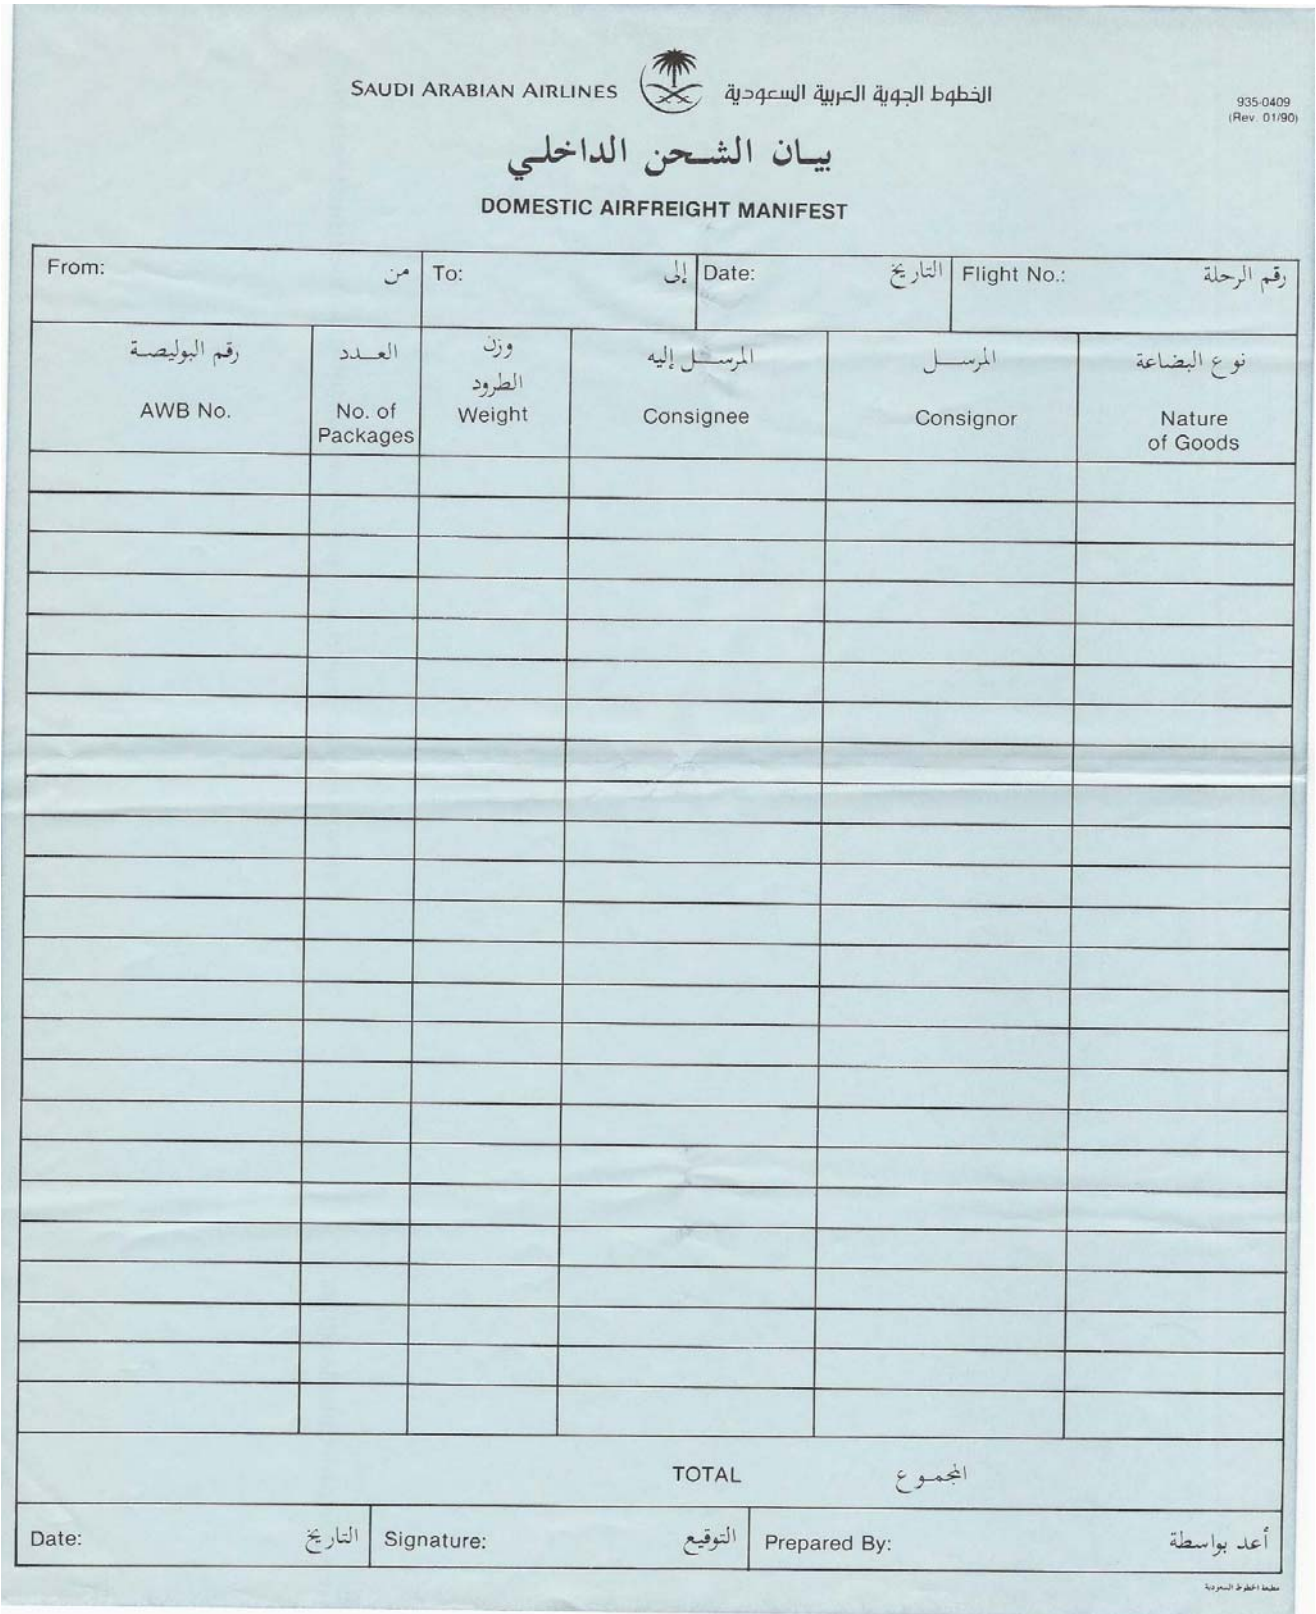 SAUDI ARABIAN AIRLINES الخطوط الجوية العربية السعودية
935-0409
(Rev. 01/90)
بيـان الشـحن الداخلـي
DOMESTIC AIRFREIGHT MANIFEST
From: من To: إلى Date: التاريخ Flight No.: رقم الرحلة
رقم البوليصـة
AWB No.
العـــدد
No. of
Packages
وزن
الطرود
Weight
المرســـل إليه
Consignee
المرســـل
Consignor
نوع البضاعة
Nature
of Goods
TOTAL المجمـوع
Date: التاريخ Signature: التوقيع Prepared By: أعد بواسطة
مطبعة الخطوط السعودية